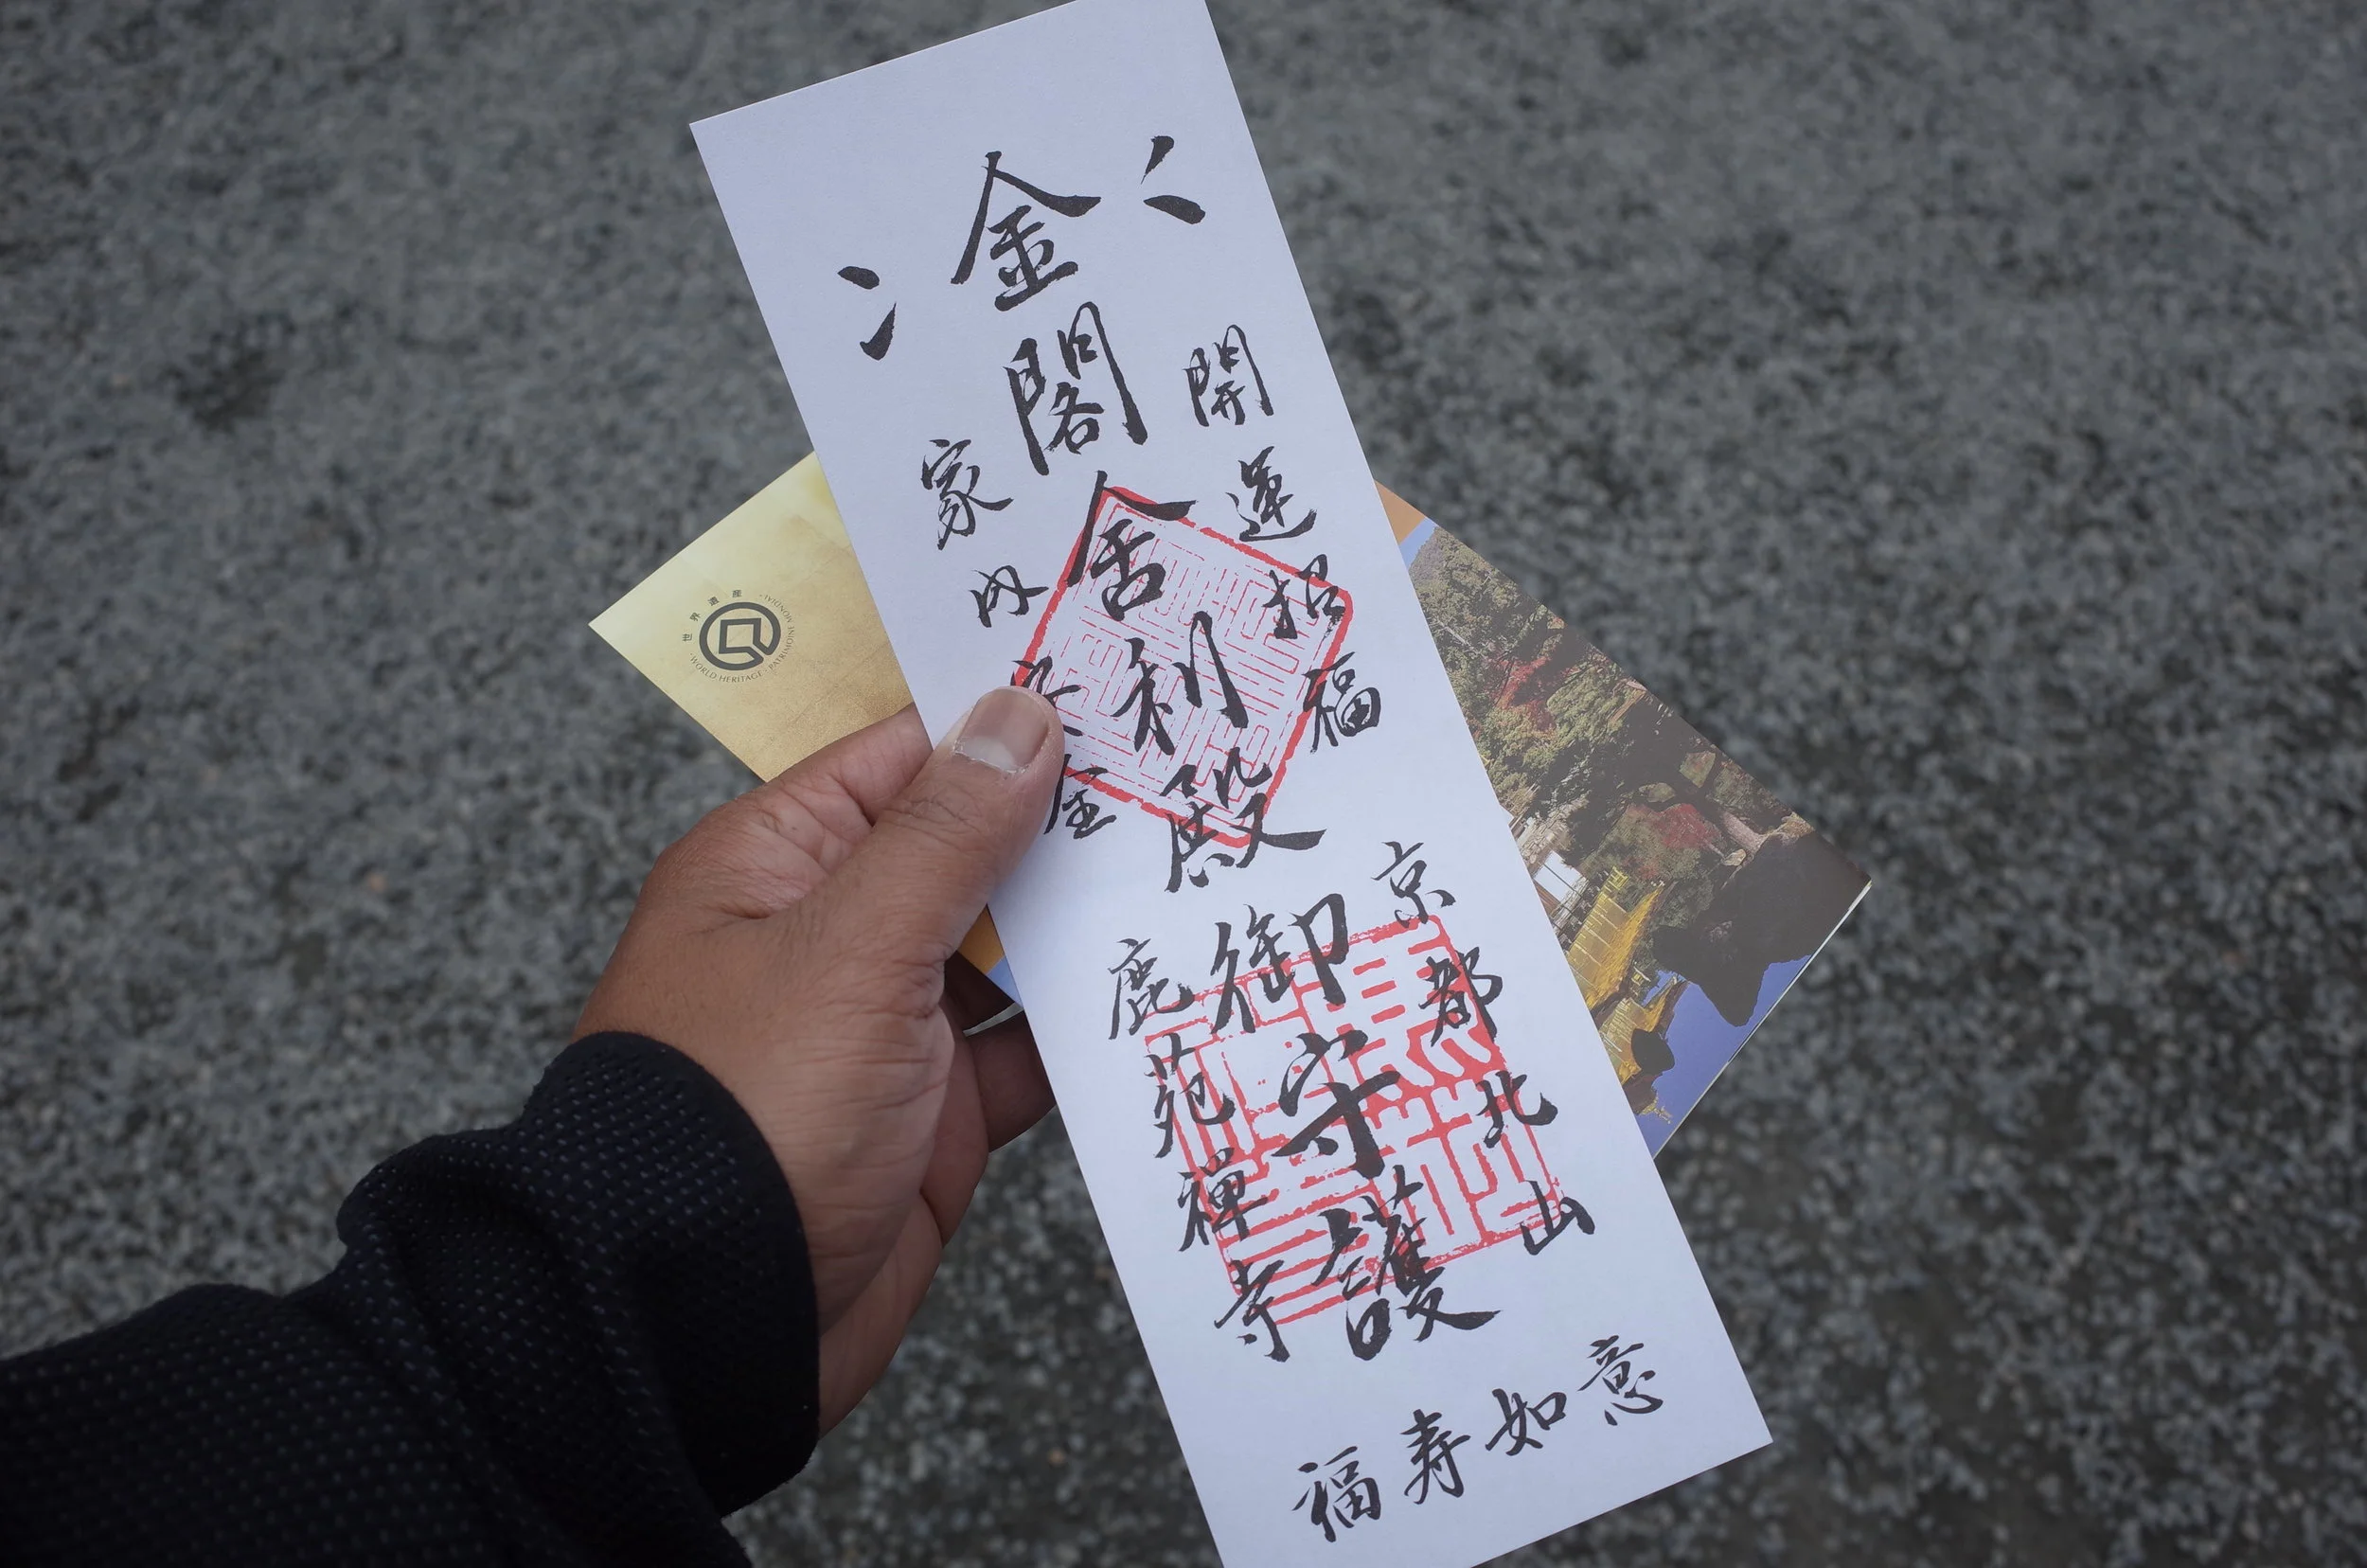 金閣舎利殿御守護
開運招福
家内安全
京都北山
鹿苑禅寺
福寿如意
世界遺産
WORLD HERITAGE · PATRIMOINE MONDIAL